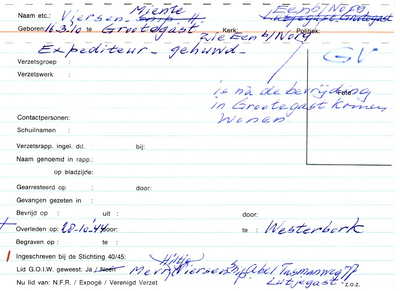 Miente Eenb/Norg
Naam etc.: Viersen, Snip H Lutjegast Grootegast
Geboren: 16.3.10 te Grootegast Kerk: Politiek:
zie Eenb/Norg
Expediteur - gehuwd - GV
Verzetsgroep
Verzetswerk :
is na de bevrijding
in Grootegast komen
wonen
Contactpersonen:
Schuilnaam :
Verzetsrapp. ingel. dd.: bij:
Naam genoemd in rapp.:
op bladzijde:
Gearresteerd op : door:
Gevangen gezeten in :
Bevrijd op : uit : door:
Overleden op: 20-10-'44 door: te : Westerbork
Begraven op : te :
Ingeschreven bij de Stichting 40/45: Hiltje
Lid G.O.I.W. geweest: Ja / Neen Abel Tasmanweg 77
Nu lid van: N.F.R. / Expogé / Verenigd Verzet Lutjegast z.o.z.